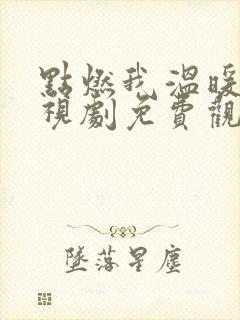 點燃我溫暖
視劇免費觀
墜落星塵